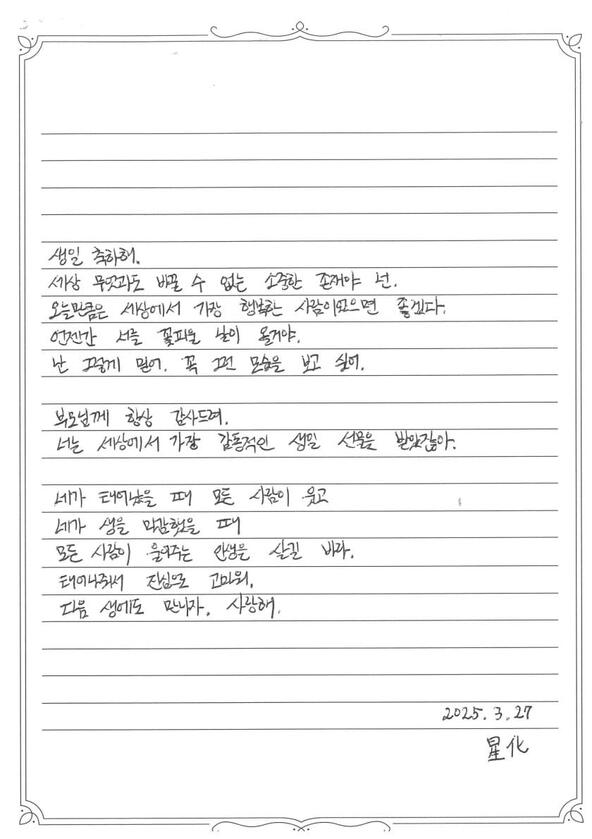 생일 축하해.
세상 무엇과도 바꿀 수 없는 소중한 존재야 넌.
오늘만큼은 세상에서 가장 행복한 사람이었으면 좋겠다.
언젠간 서로 꽃피울 날이 올거야.
난 그렇게 믿어. 꼭 그런 모습을 보고 싶어.
부모님께 항상 감사드려.
너는 세상에서 가장 감동적인 생일 선물을 받았잖아.
네가 태어났을 때 모든 사람이 웃고
네가 생을 마감했을 때
모든 사람이 울어주는 인생을 살길 바라.
태어나줘서 진심으로 고마워.
다음 생에도 만나자. 사랑해.
2025. 3. 27
星化